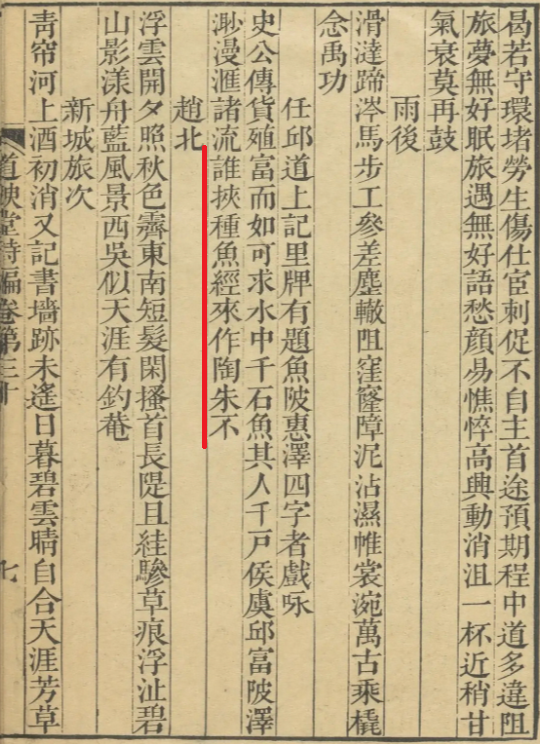 曷若守環堵勞生傷仕宦刺促不自主首途預期程中道多違阻
旅夢無好眠旅遇無好語愁顏易憔悴高興動消沮一杯近稍甘
氣衰莫再鼓
雨後
滑澾蹄涔馬步工參差塵轍阻窪窿障泥沾濕帷裳涴萬古乘橇
念禹功
任邱道上記里牌有題魚陂惠澤四字者戲咏
史公傳貨殖富而如可求水中千石魚其人千戶侯虞邱富陂澤
渺漫滙諸流誰挾種魚經來作陶朱不
趙北
浮雲開夕照秋色霽東南短髮閑搔首長隄且絓驂草痕浮沚碧
山影漾舟藍風景西吳似天涯有釣菴
新城旅次
靑帘河上酒初消又記書墻跡未遙日暮碧雲晴自合天涯芳草
道映堂詩編卷第三十
七